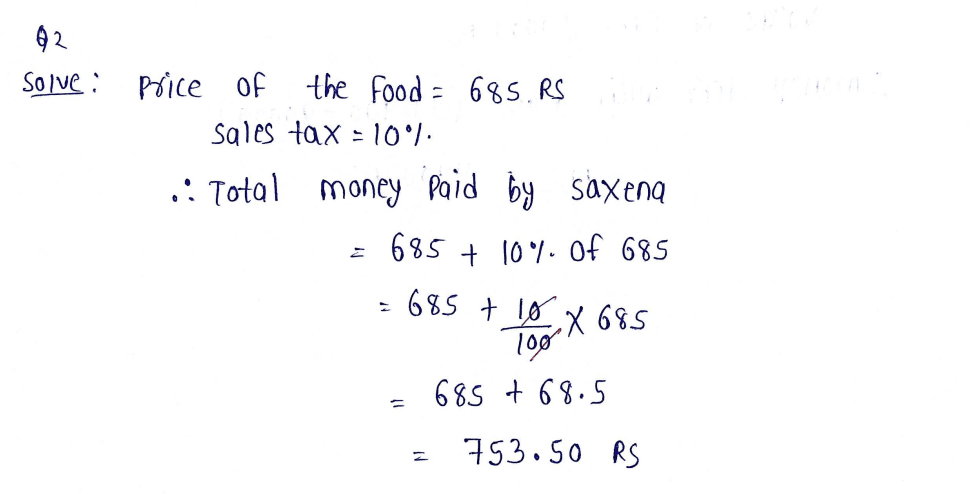 Q2
Solve: Price of the Food = 685 RS
Sales tax = 10%.
∴ Total money Paid by saxena
= 685 + 10%. Of 685
= 685 + 10/100 X 685
= 685 + 68.5
= 753.50 RS